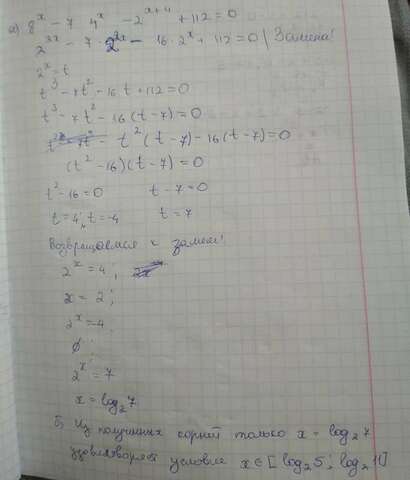 а) 8^x - 7 4^x - 2^(x+4) + 112 = 0
2^(3x) - 7 · 2^(2x) - 16 · 2^x + 112 = 0 | Замена!
2^x = t
t^3 - 7t^2 - 16t + 112 = 0
t^3 - 7t^2 - 16(t - 7) = 0
t^2(t - 7) - 16(t - 7) = 0
(t^2 - 16)(t - 7) = 0
t^2 - 16 = 0 t - 7 = 0
t = 4; t = -4 t = 7
Возвращаемся к замене!
2^x = 4;
x = 2;
2^x = -4
∅
2^x = 7
x = log_2 7
б) Из полученных корней только x = log_2 7
удовлетворяет условию x ∈ [log_2 5; log_2 11]